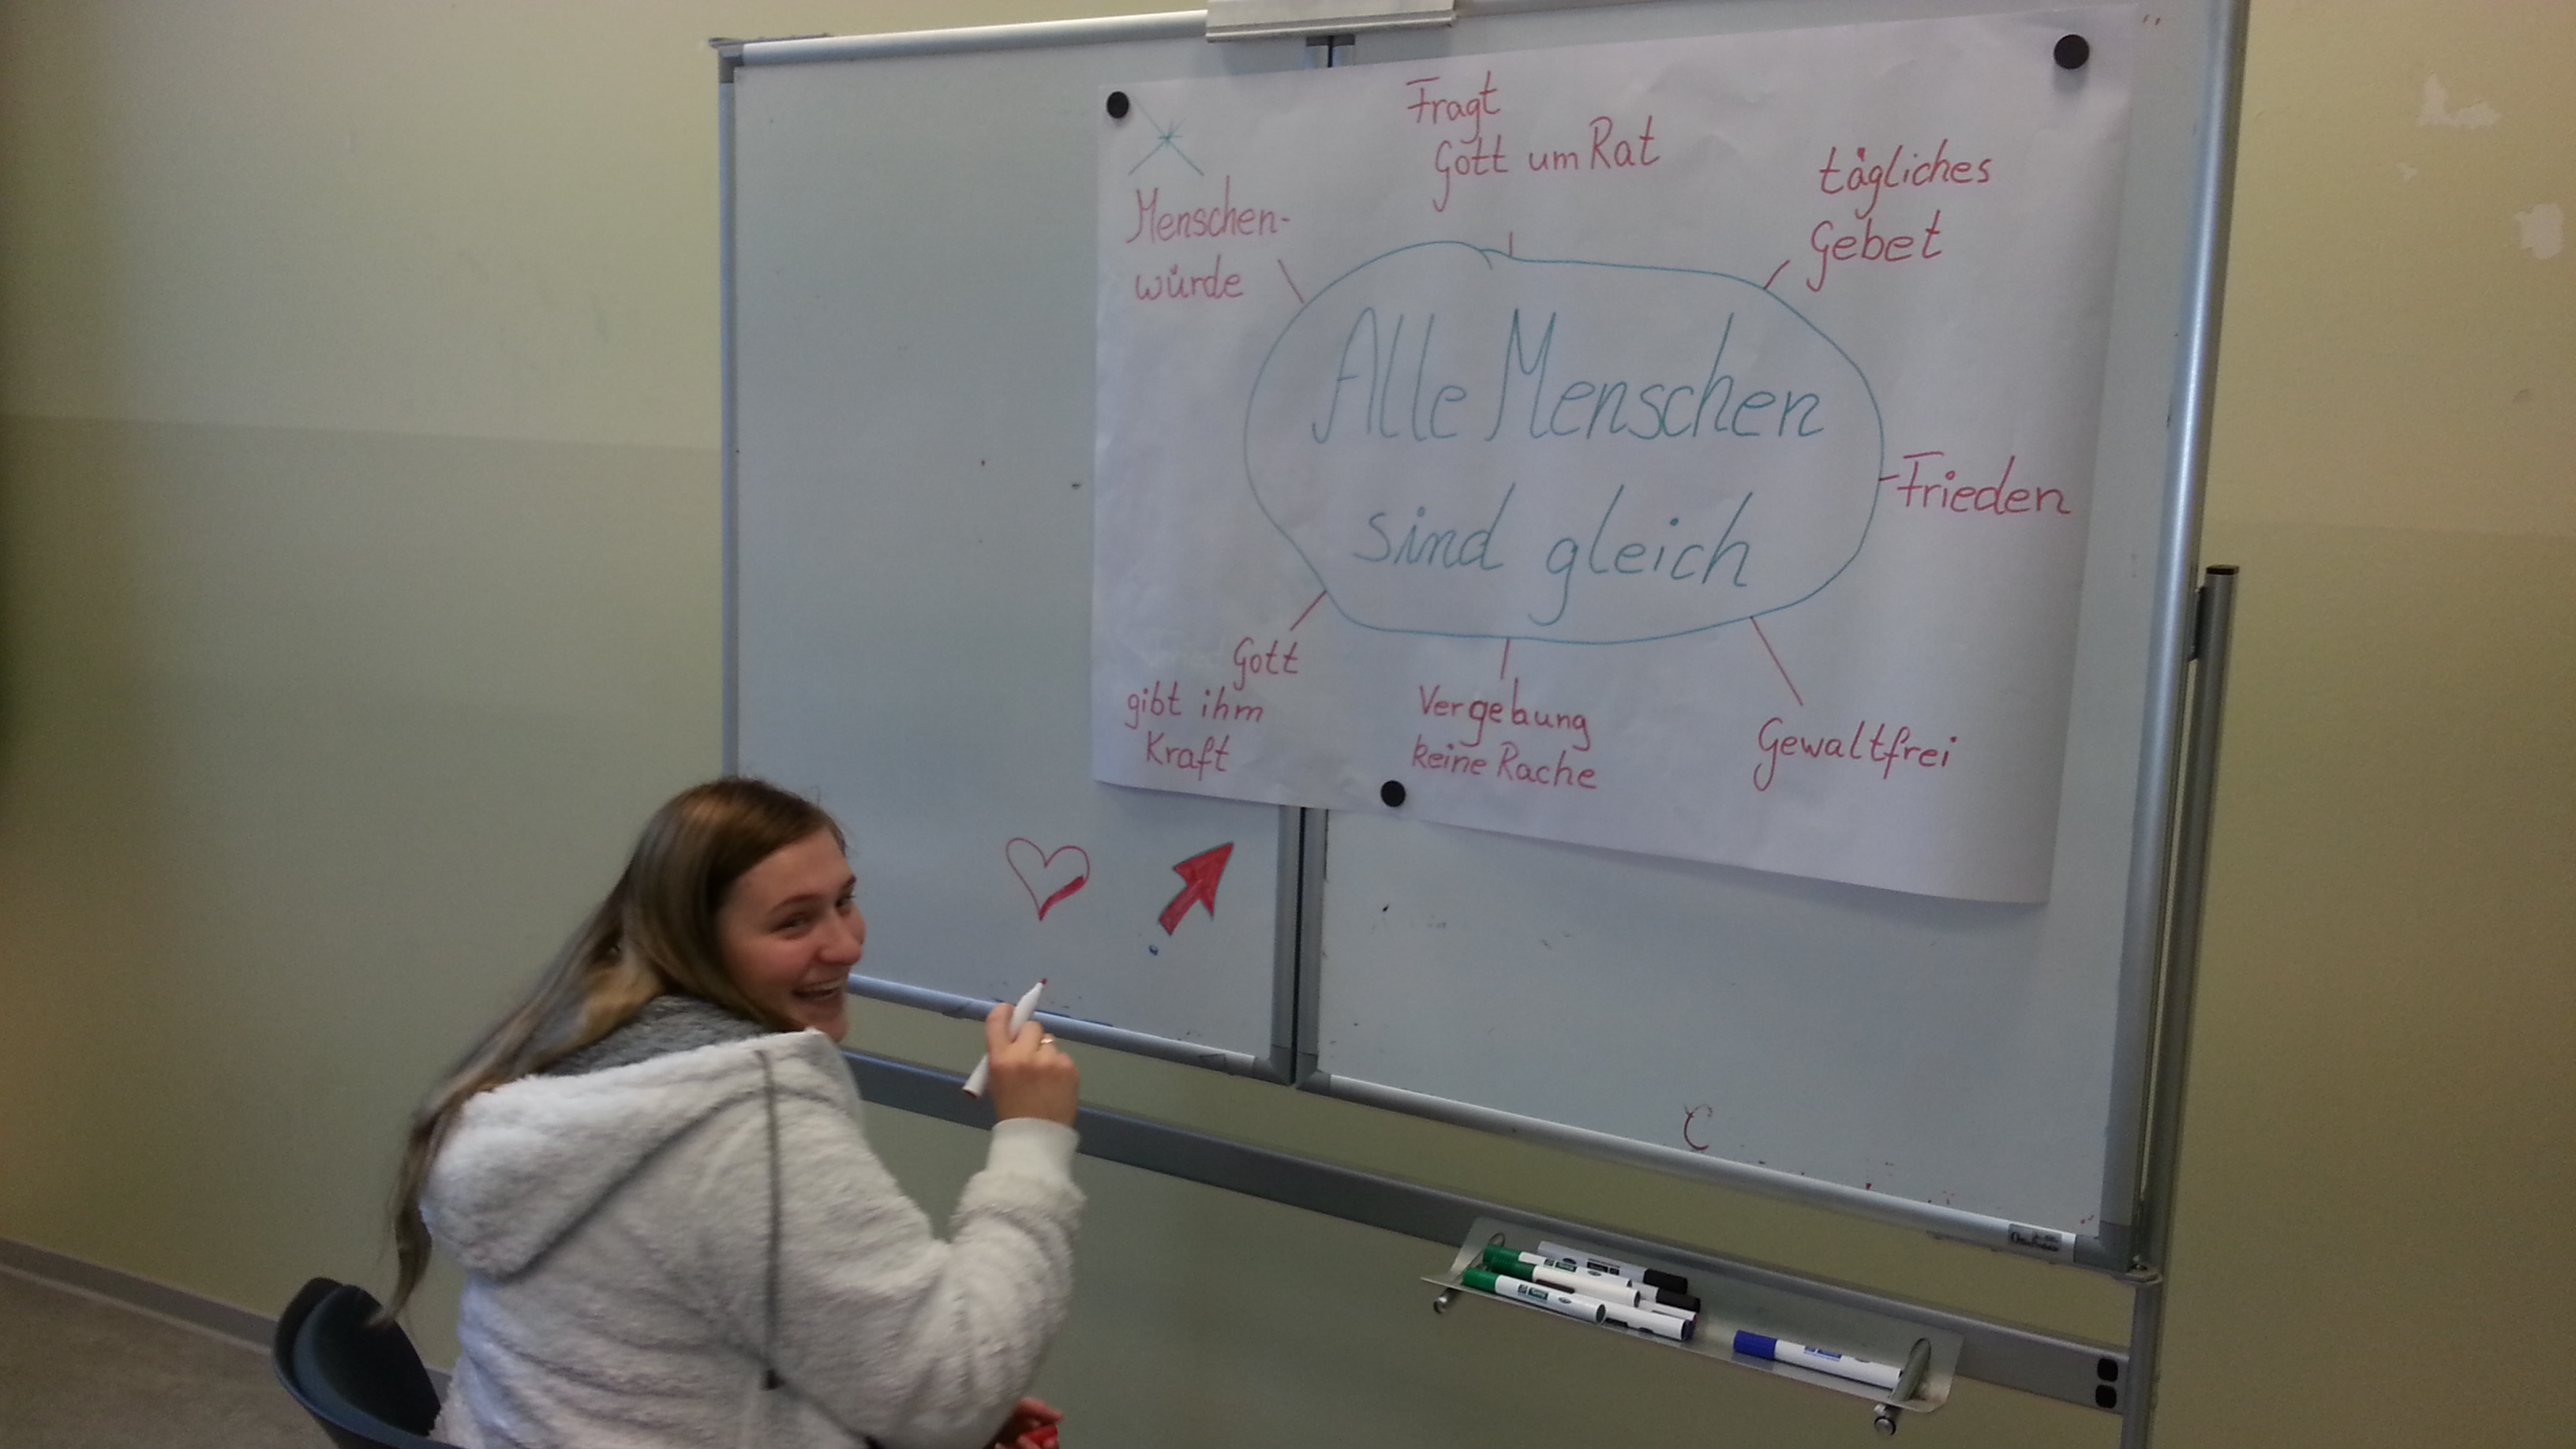 Fragt
Gott um Rat
tägliches
Gebet
Menschen-
würde
Alle Menschen
sind gleich
Frieden
Gott
gibt ihm
Kraft
Vergebung
keine Rache
Gewaltfrei
C